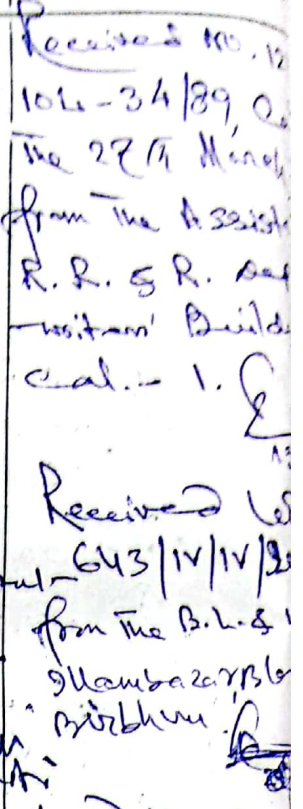 Received No. 12
10L-34/89,
The 27th March
from The Assist
R. R. & R. Dep
-writers' Build
Cal. - 1.
Received
643/IV/IV/
from The B.L. &
Illambazar, Blo
Birbhum